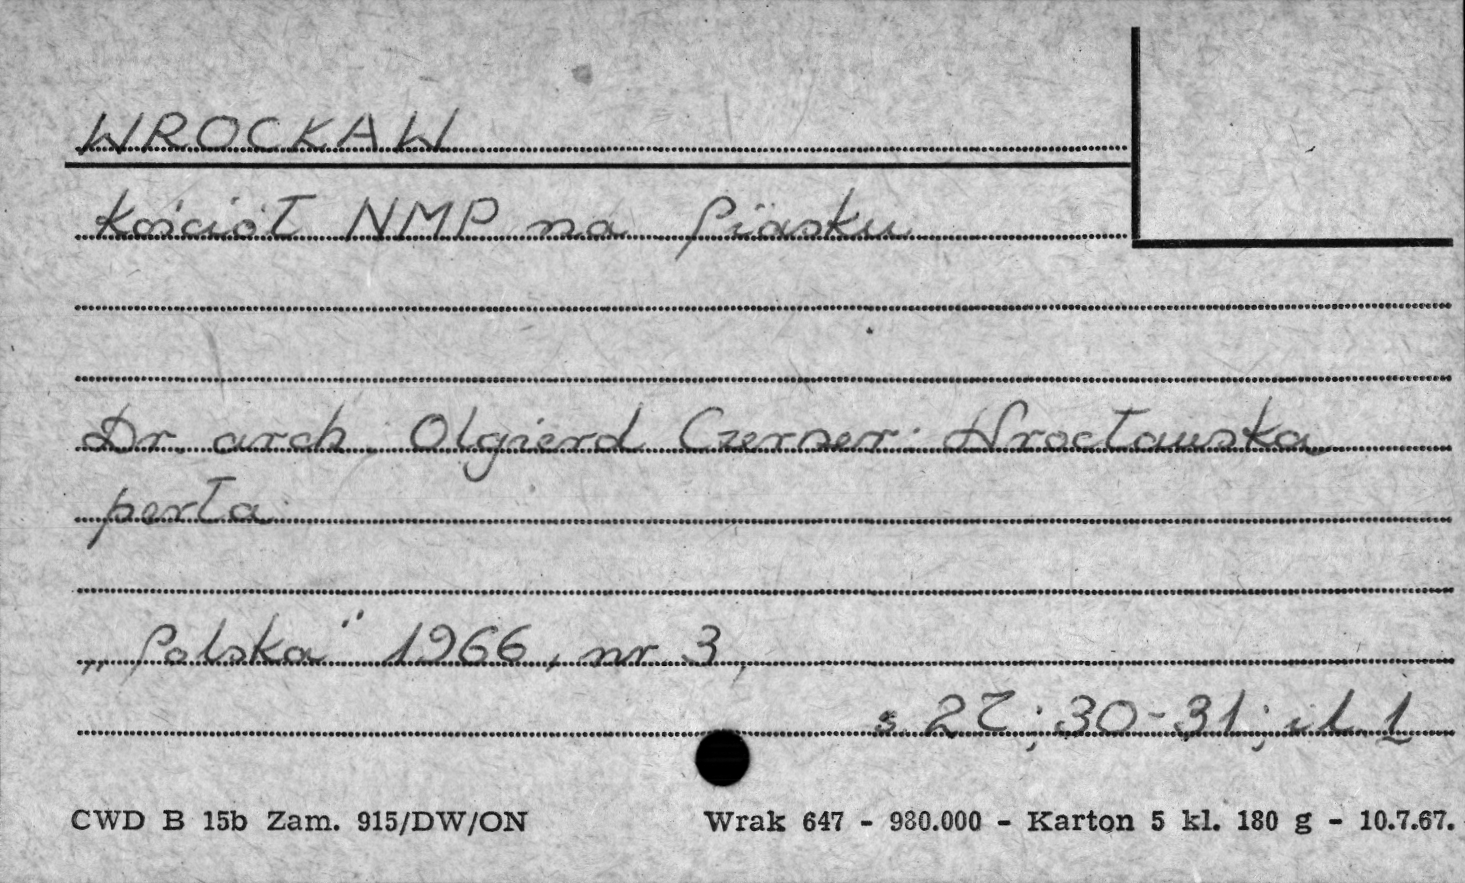 WROCŁAW
Kościół NMP na Piasku
Dr arch. Olgierd Czerner: Wrocławska
perła
„Polska" 1966, nr 3,
s. 27; 30-31; il. 1
CWD B 15b Zam. 915/DW/ON Wrak 647 - 980.000 - Karton 5 kl. 180 g - 10.7.67.